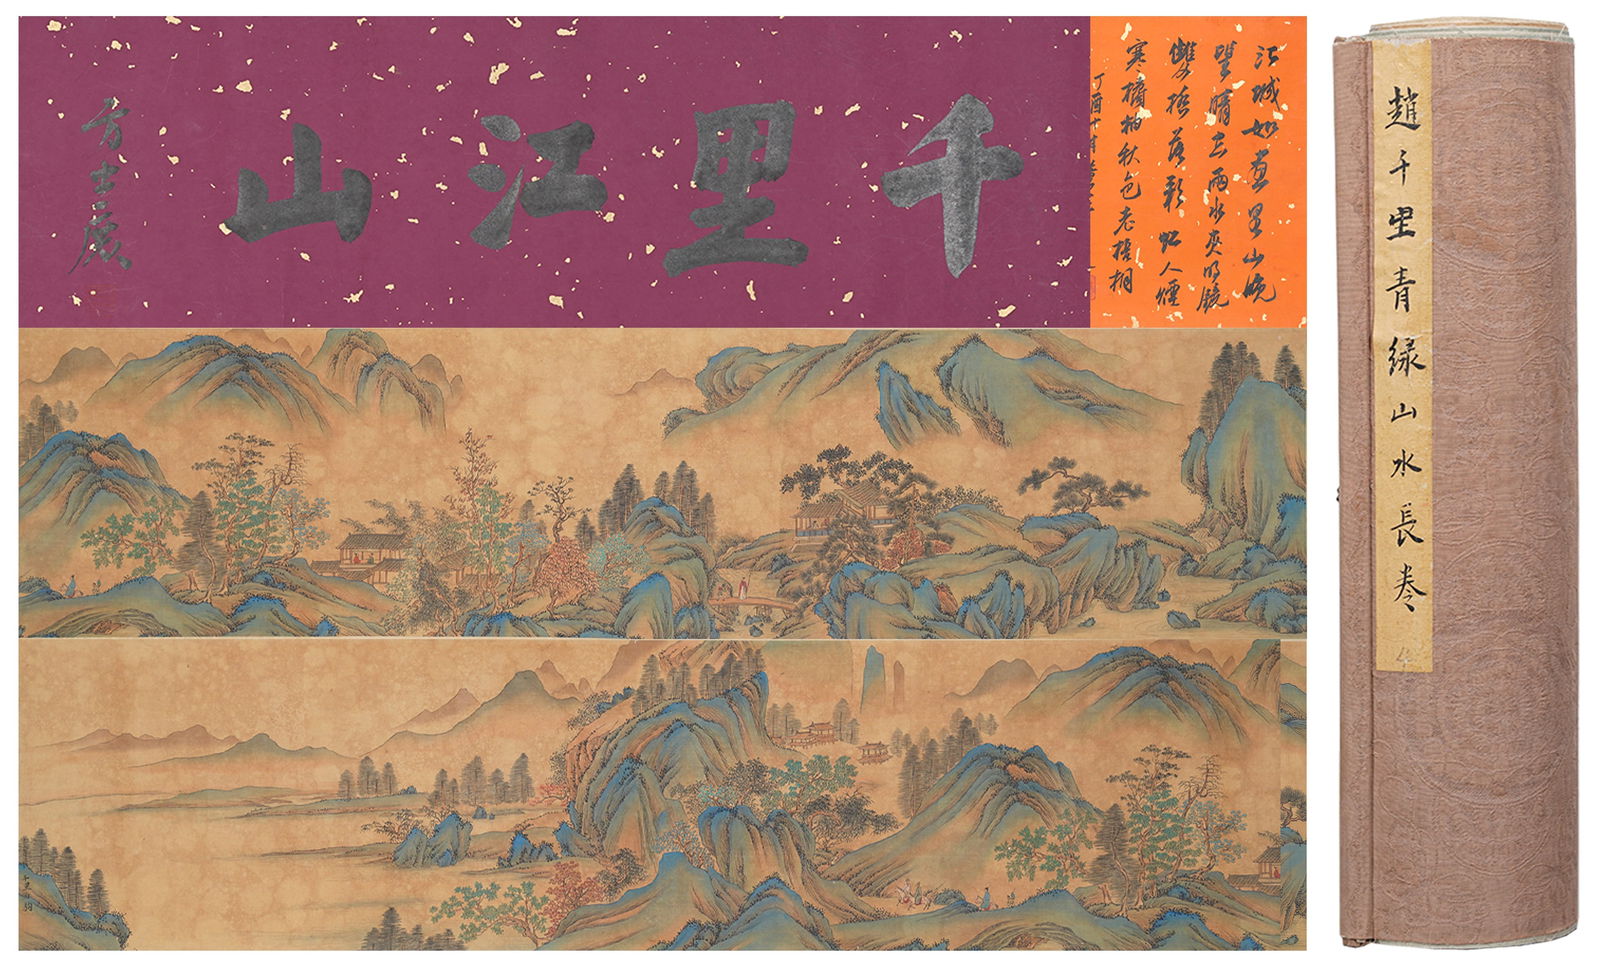 千里江山
方士庶
江城如畫里山晚
望晴空兩水夾明鏡
雙橋落彩虹人煙
寒橘柚秋色老梧桐
丁酉十月
趙千里青綠山水長卷